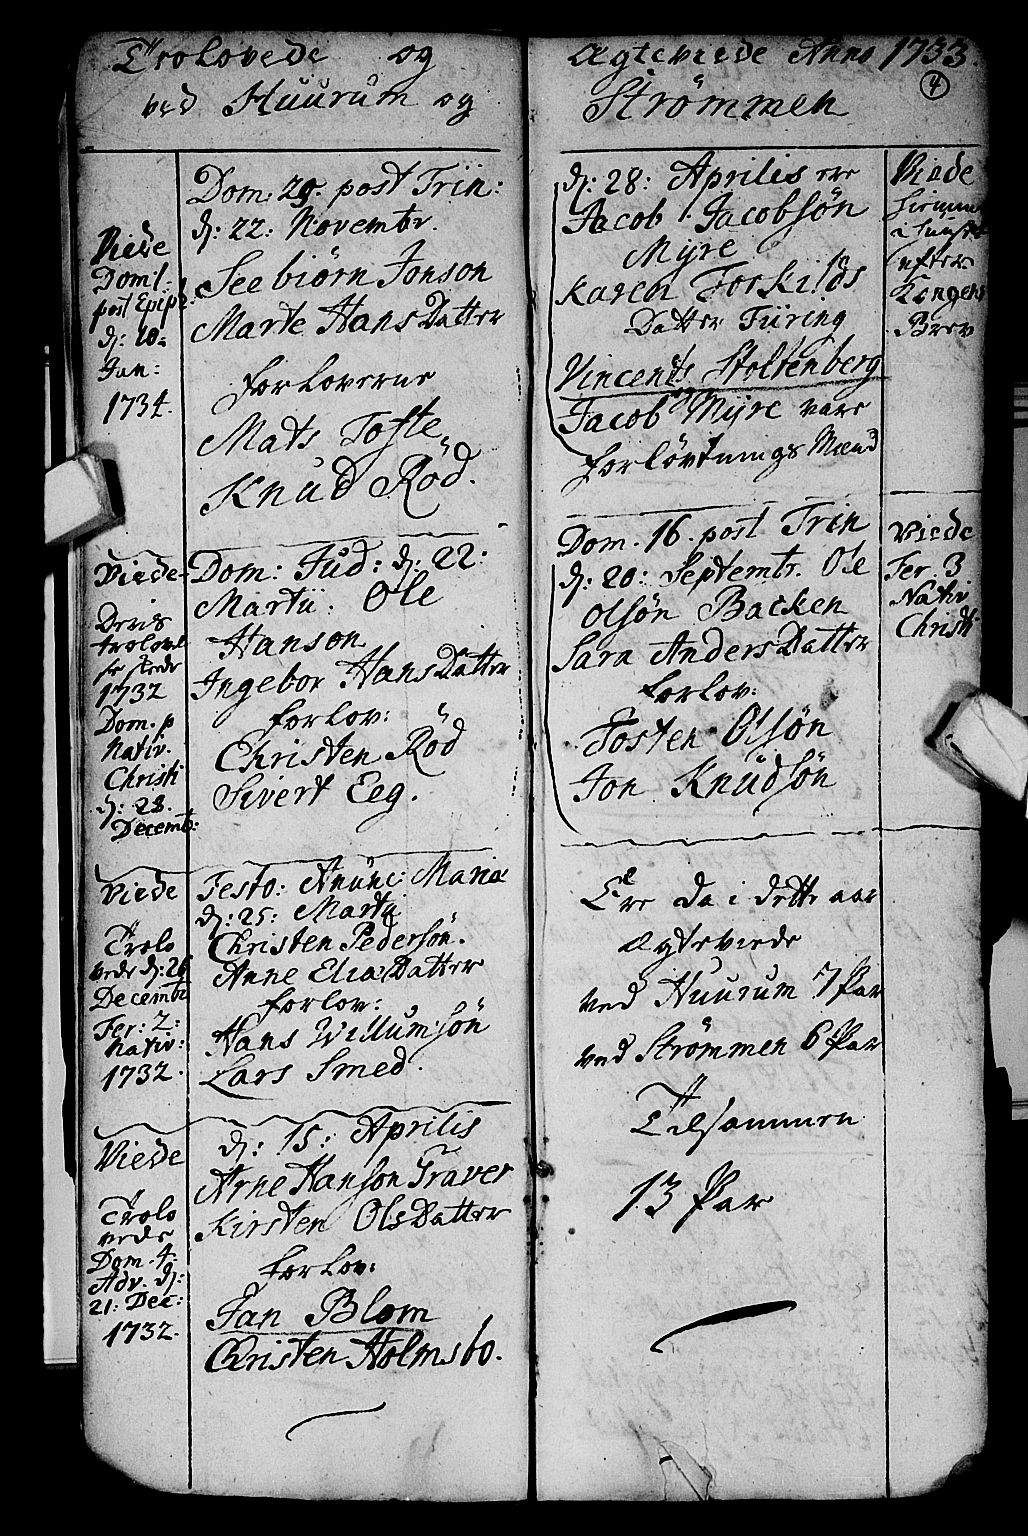 Trolovede og
ved Huurum og
Viede
Dom 1.
post Epiph:
d: 10:
Jan:
1734.
Dom. 25. post Trin:
d: 22: Novembr.
Seebiørn Jonson
Marte HansDatter
forloverne
Mats Tofte
Knud Röd.
Viede
Deris
trolovel
se stede
1732
Dom. p
Nativ.
Christi
d: 28.
Decemb:
Dom: Jud: d: 22:
Martii. Ole
Hanson
Ingebor HansDatter
forlov:
Christen Röd
Sivert Eeg.
Viede
Trolo
vede d: 26
Decembr
Fer: 2:
Nativ:
1732.
Festo: Anunc: Mariæ
d: 25: Martii
Christen Pedersön.
Anne EliæDatter
forlov:
Hans Willumsön
Lars Smed.
Viede
Trolo
vede
Dom. 4.
Adv. d:
21: Dec:
1732.
d: 15: Aprilis
Arne Hanson Graver
Kirsten OlsDatter
forlov:
Jan Blom
Christen Holmsbo.
Ægteviede Anno 1733.
Strömmen
4
d: 28: Aprilis ere
Jacob Jacobsön
Myre
Karen Torkilds
Datter Türing
Vincents Stoltenberg
Jacob Myre vare
forlövtnings Mænd
Viede
hiemme
i huuset
efter
Kongens
Brev
Dom. 16. post Trin
d: 20: Septembr. Ole
Olsön Backen
Sara AndersDatter
forlov:
Tosten Olsön
Jon Knudsön
Viede
Fer. 3
Nativ
Christi
Ere da i dette aar
Ægteviede
ved Huurum 7 Par
ved Strömmen 6 Par
Tilsammen
13 Par